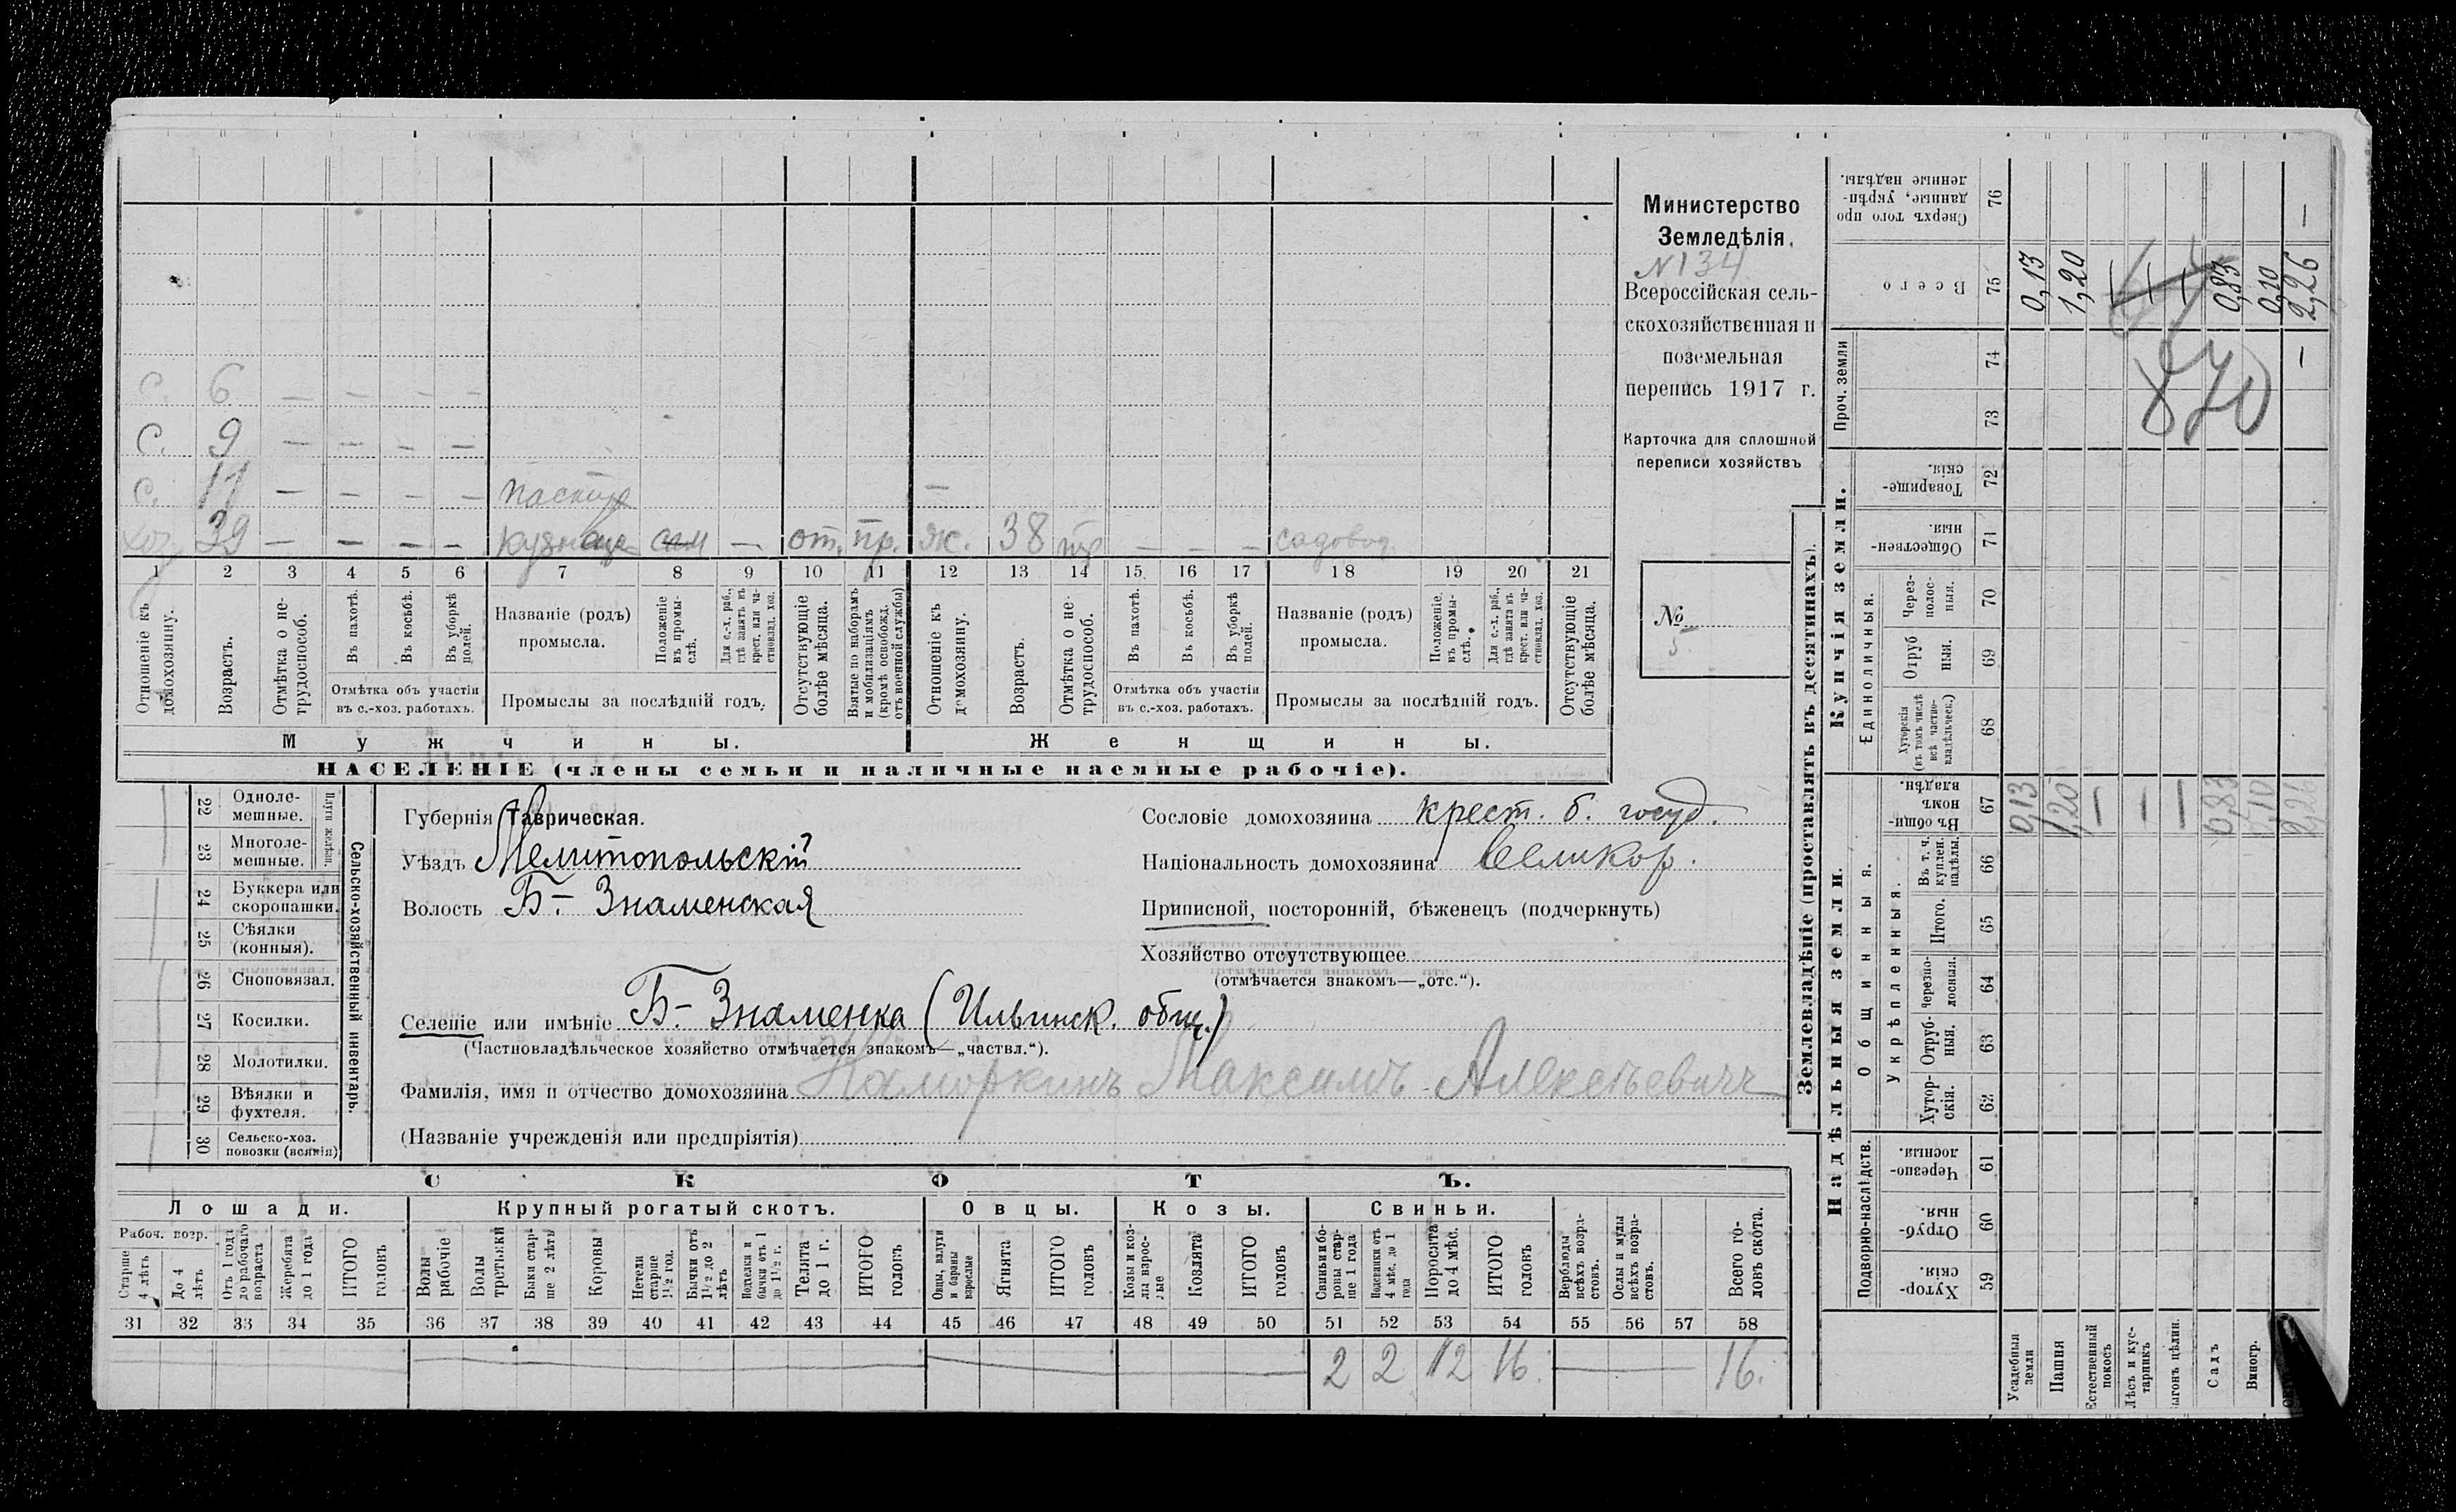 с. 6 — — — —
с. 9 — — — —
с. 11 — — — — пастух —
хоз. 39 — — — — кузнец — от. пр. ж. 38 — — — садовод.
1 2 3 4 5 6 7 8 9 10 11 12 13 14 15 16 17 18 19 20 21
Отношеніе къ домохозяину.
Возрастъ.
Отмѣтка о нетрудоспособ.
Въ пахотѣ.
Въ косьбѣ.
Въ уборкѣ полей.
Отмѣтка объ участіи въ с.-хоз. работахъ.
Названіе (родъ) промысла.
Положеніе въ промыслѣ.
Для с.-х. раб., гдѣ занятъ въ крест. или частновлад. хоз.
Промыслы за послѣдній годъ.
Отсутствующіе болѣе мѣсяца.
Взятые по наборамъ и мобилизаціямъ (кромѣ освобожд. отъ военной службы)
Отношеніе къ домохозяину.
Возрастъ.
Отмѣтка о нетрудоспособ.
Въ пахотѣ.
Въ косьбѣ.
Въ уборкѣ полей.
Отмѣтка объ участіи въ с.-хоз. работахъ.
Названіе (родъ) промысла.
Положеніе въ промыслѣ.
Для с.-х. раб., гдѣ занятъ въ крест. или частновлад. хоз.
Промыслы за послѣдній годъ.
Отсутствующіе болѣе мѣсяца.
Мужчины. Женщины.
НАСЕЛЕНІЕ (члены семьи и наличные наемные рабочіе).
Министерство
Земледѣлія.
N 134
Всероссійская сель-
скохозяйственная и
поземельная
перепись 1917 г.
Карточка для сплошной
переписи хозяйствъ
№ 5
22 Одноле-
мешные.
23 Многоле-
мешные.
Плуги желѣзн.
24 Буккера или
скоропашки.
25 Сѣялки
(конныя).
26 Сноповязал.
27 Косилки.
28 Молотилки.
29 Вѣялки и
фухтеля.
30 Сельско-хоз.
повозки (всякія)
Сельско-хозяйственный инвентарь.
Губернія Таврическая.
Уѣздъ Мелитопольскій
Волость Б.- Знаменская
Селеніе или имѣніе Б.- Знаменка (Ильинск. общ.)
(Частновладѣльческое хозяйство отмѣчается знакомъ—„частвл.“).
Фамилія, имя и отчество домохозяина Наморкинъ Максимъ Алексѣевичъ
(Названіе учрежденія или предпріятія)
Сословіе домохозяина крест. б. госуд.
Національность домохозяина Великор.
Приписной, посторонній, бѣженецъ (подчеркнуть)
Хозяйство отсутствующее
(отмѣчается знакомъ—„отс.“).
СКОТЪ.
Лошади. Крупный рогатый скотъ. Овцы. Козы. Свиньи.
Рабоч. возр.
Старше 4 лѣтъ
До 4 лѣтъ
Отъ 1 года до рабочаго возраста
Жеребята до 1 года
ИТОГО головъ
Волы рабочіе
Волы третьяки
Быки старше 2 лѣтъ
Коровы
Нетели старше 1½ год.
Бычки отъ 1½ до 2 лѣтъ
Подтелки и бычки отъ 1 до 1½ г.
Телята до 1 г.
ИТОГО головъ
Овцы, валухи и бараны взрослые
Ягнята
ИТОГО головъ
Козы и козлы взрослые
Козлята
ИТОГО головъ
Свиньи и бороны старше 1 года
Подсвинки отъ 4 мѣс. до 1 года
Поросята до 4 мѣс.
ИТОГО головъ
Верблюды всѣхъ возрастовъ.
Ослы и мулы всѣхъ возрастовъ.
Всего головъ скота.
31 32 33 34 35 36 37 38 39 40 41 42 43 44 45 46 47 48 49 50 51 52 53 54 55 56 57 58
2 2 12 16. — 16.
Землевладѣніе (проставлять въ десятинахъ).
Надѣльныя земли. Купчія земли. Проч. земли
Подворно-наслѣдств.
Общинныя.
Укрѣпленныя.
Единоличныя.
59 Хуторскія.
60 Отрубныя.
61 Чрезполосныя.
62 Хуторскія.
63 Отрубныя.
64 Черезполосныя.
65 Итого.
66 Въ т. ч. куплен. надѣлы.
67 Въ общинномъ владѣн.
68 Хуторскія (въ томъ числѣ всѣ частновладѣльческ.)
69 Отрубныя.
70 Черезполосныя.
71 Общественныя.
72 Товарищескія.
73
74
75 Всего
76 Сверхъ того проданные, укрѣпленные надѣлы.
0,13 1,20 — — — 0,83 0,10 2,26
0,13 1,20 — — — 0,83 0,10 2,26
870
Усадебныя земли
Пашня
Естественный покосъ
Лѣсъ и кустарникъ
Выгонъ цѣлин.
Садъ
Виногр.